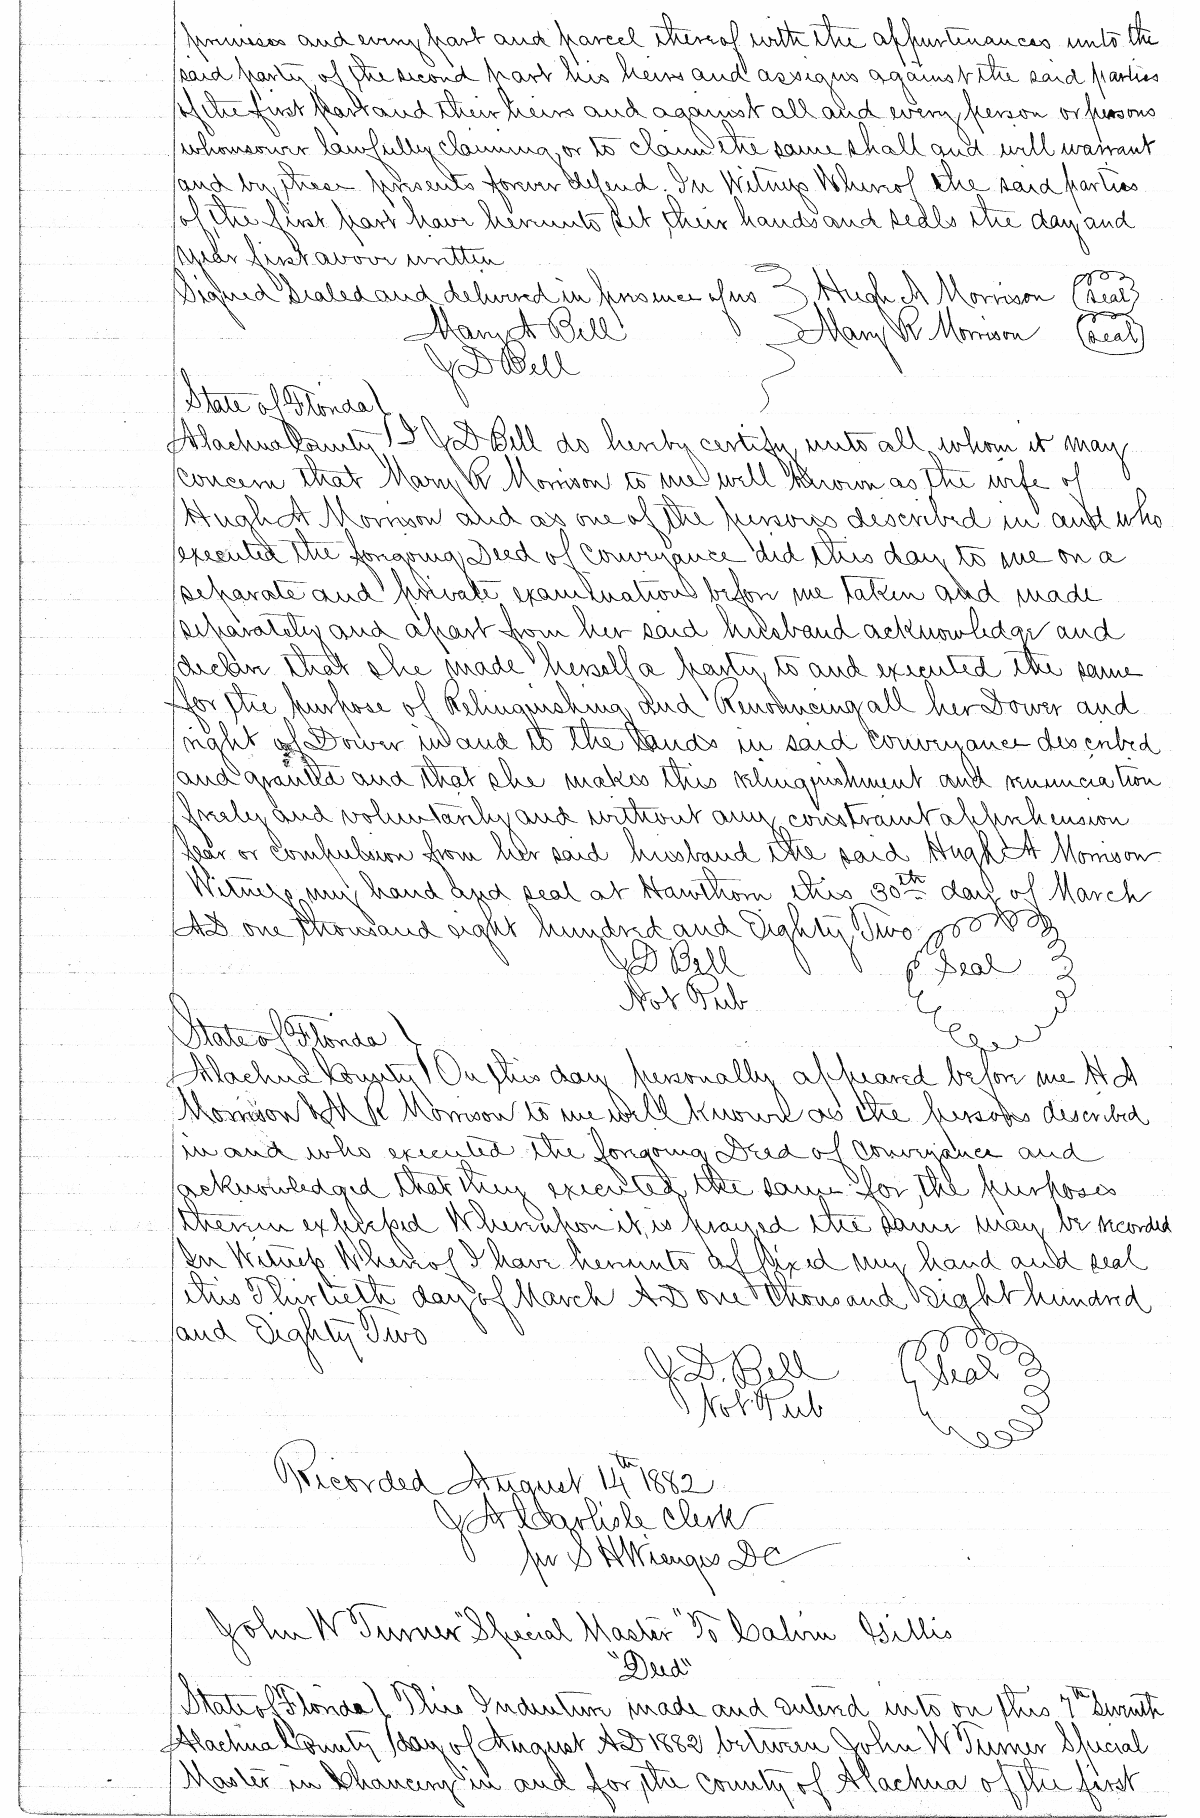 premises and every part and parcel thereof with the appurtenances unto the
said party of the second part his heirs and assigns against the said parties
of the first part and their heirs and against all and every person or persons
whomsoever lawfully claiming or to claim the same shall and will warrant
and by these presents forever defend. In Witness Whereof the said parties
of the first part have hereunto set their hands and seals the day and
year first above written
Signed Sealed and delivered in presence of us Hugh A Morrison (Seal)
Mary A Bell Mary R Morrison (Seal)
J D Bell
State of Florida
Alachua County I J D Bell do hereby certify unto all whom it may
concern that Mary R Morrison to me well known as the wife of
Hugh A Morrison and as one of the persons described in and who
executed the forgoing Deed of Conveyance did this day to me on a
separate and private examination before me taken and made
separately and apart from her said husband acknowledge and
declare that she made herself a party to and executed the same
for the purpose of Relinquishing and Renouncing all her Dower and
right of Dower in and to the Lands in said Conveyance described
and granted and that she makes this relinquishment and renunciation
freely and voluntarily and without any constraint apprehension
fear or compulsion from her said husband the said Hugh A Morrison
Witness my hand and seal at Hawthorn this 30th day of March
AD one thousand eight hundred and Eighty Two
J D Bell Seal
Not Pub
State of Florida
Alachua County On this day personally appeared before me H A
Morrison & M R Morrison to me well known as the persons described
in and who executed the forgoing Deed of Conveyance and
acknowledged that they executed the same for the purposes
therein expressed Whereupon it is prayed the same may be recorded
In Witness Whereof I have hereunto affixed my hand and seal
this Thirtieth day of March AD one thousand Eight hundred
and Eighty Two
J. D. Bell Seal
Not Pub
Recorded August 14th 1882
J A Carlisle Clerk
per S H Wienges DC
John W Turner "Special Master" To Calvin Gillis
"Deed"
State of Florida This Indenture made and entered into on this 7th Seventh
Alachua County day of August AD 1882 between John W Turner Special
Master in Chancery in and for the county of Alachua of the first